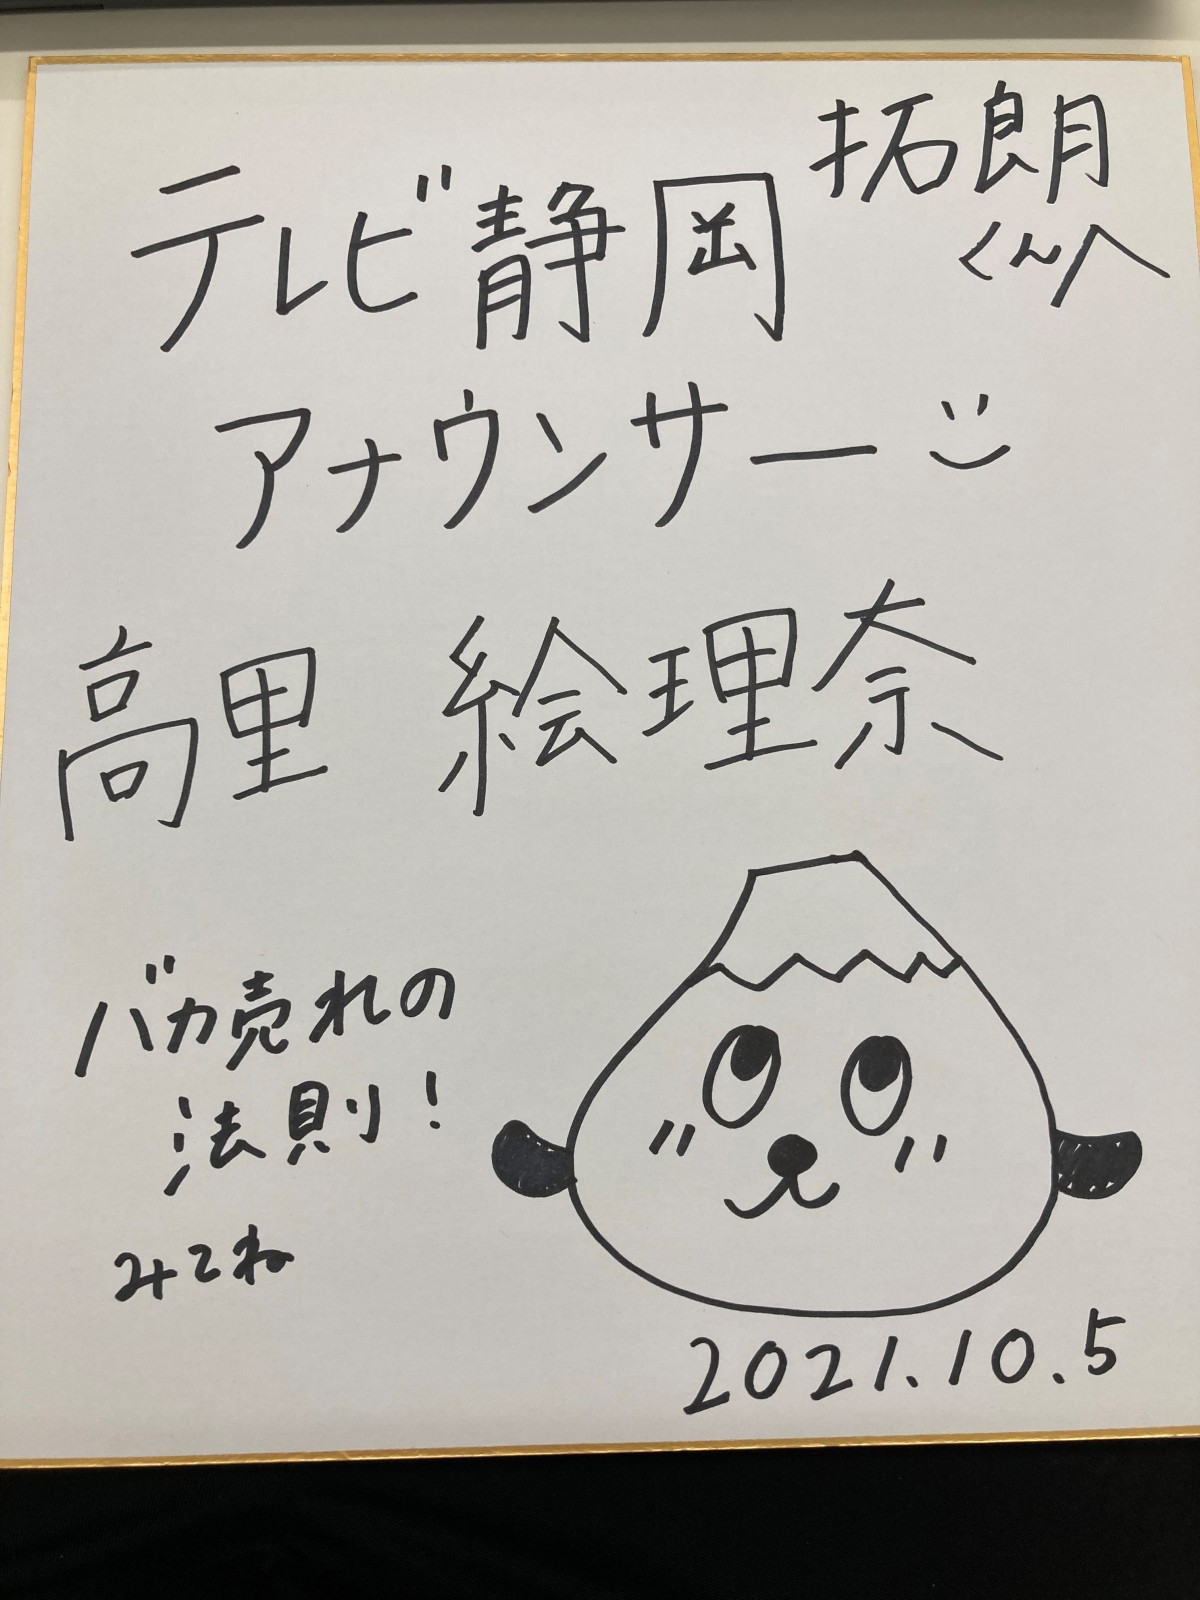 拓朗
くんへ
テレビ静岡
アナウンサー
高里 絵理奈
バカ売れの
法則!
みてね
2021.10.5